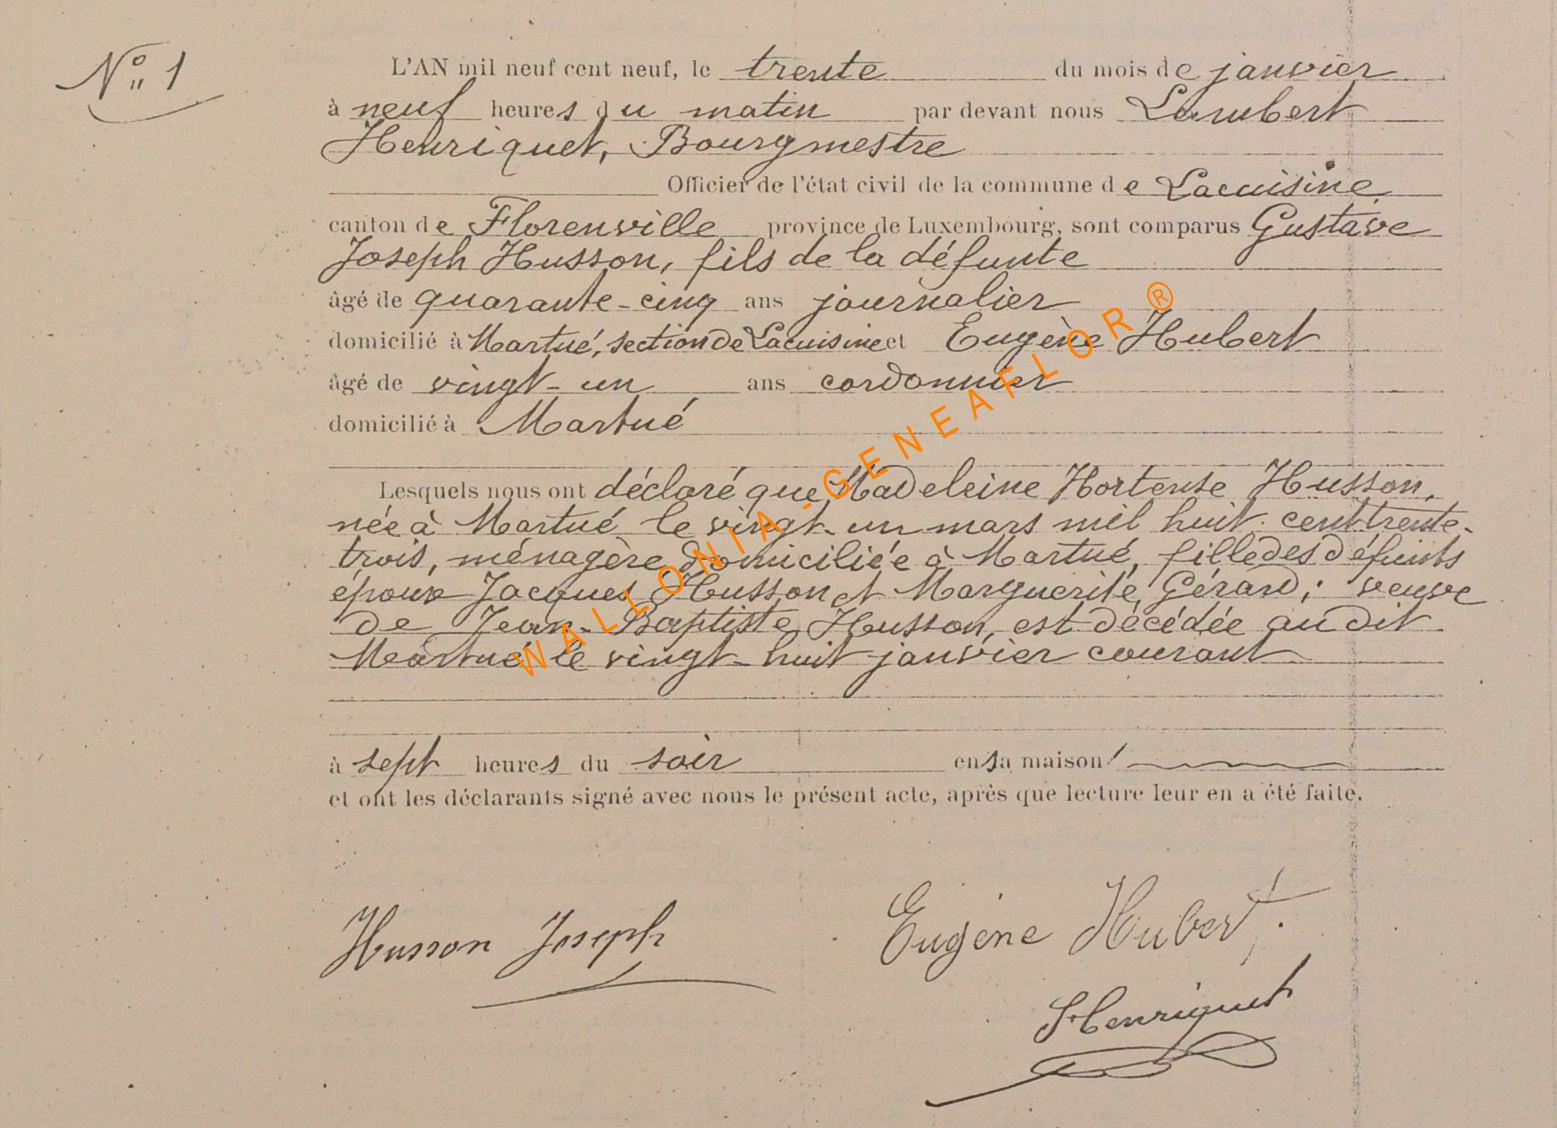 N° 1
L'AN mil neuf cent neuf, le trente du mois de janvier
à neuf heures du matin par devant nous Lambert
Henriquet, Bourgmestre
Officier de l'état civil de la commune de Lacuisine
canton de Florenville province de Luxembourg, sont comparus Gustave
Joseph Husson, fils de la défunte
âgé de quarante-cinq ans journalier
domicilié à Martué, section de Lacuisine et Eugène Hubert
âgé de vingt-un ans cordonnier
domicilié à Martué
Lesquels nous ont déclaré que Madeleine Hortense Husson,
née à Martué le vingt-un mars mil huit cent trente-
trois, ménagère, domiciliée à Martué, fille des défunts
époux Jacques Husson et Marguerite Gérard; veuve
de Jean-Baptiste Husson, est décédée audit
Martué le vingt-huit janvier courant
à sept heures du soir en sa maison
et ont les déclarants signé avec nous le présent acte, après que lecture leur en a été faite.
Husson Joseph
Eugène Hubert.
Henriquet
WALLONIA-GENEAFLOR®